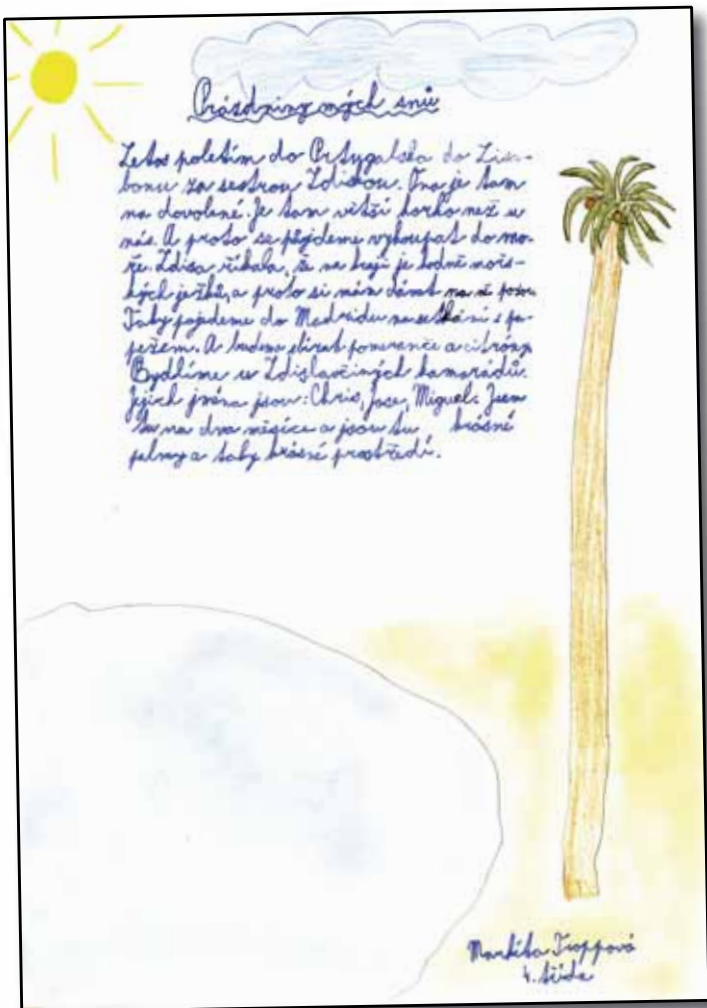 Prázdniny mých snů
Letos poletím do Portygalska do Lisa-
bonu za sestrou Zdiskou. Ona je tam
na dovolené. Je tam větší horko než u
nás. A proto se půjdeme vykoupat do mo-
ře. Zdisa říkala, že na kraji je hodně moř-
ských ježků, a proto si mám dávat na ně pozor.
Taky pojedeme do Madridu na setkání s pa-
pežem. A budem sbírat pomeranče a citróny.
Bydlíme u Zdislavčiných kamarádů.
Jejich jména jsou: Chris, Jose, Miguel. Jsem
tu na dva měsíce a jsou tu krásné
palmy a taky krásné prostředí.
Markéta Troppová
4. třída